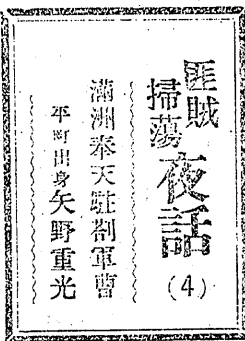 匪賊
掃蕩夜話
(4)
滿洲奉天駐剳軍曹
平町出身矢野重光